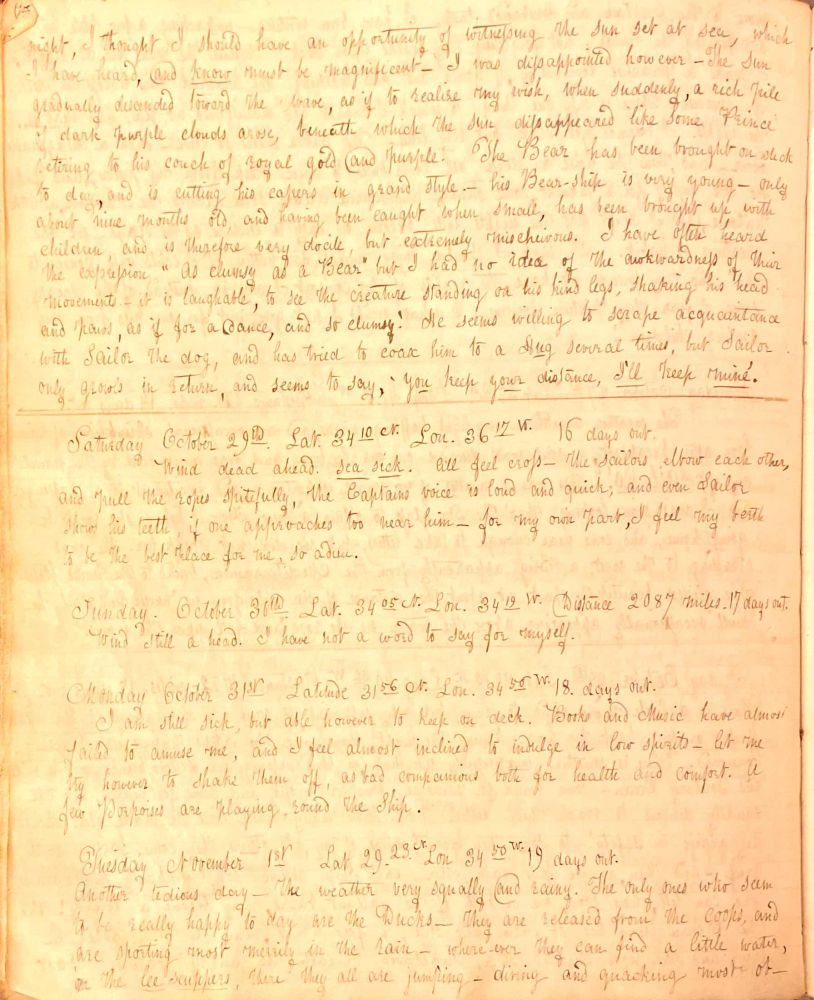 night, I thought I should have an opportunity of witnessing the sun set at sea, which
I have heard, and know must be magnificent – I was disappointed however – The Sun
gradually descended toward the wave, as if to realize my wish, when suddenly, a rich pile
of dark purple clouds arose, beneath which the sun disappeared like some Prince
retiring to his couch of royal gold and purple. The Bear has been brought on deck
to day, and is cutting his capers in grand style – his Bear-ship is very young – only
about nine months old, and having been caught when small, has been brought up with
children, and is therefore very docile, but extremely mischeivous. I have often heard
the expression "as clumsy as a Bear" but I had no idea of the awkwardness of their
movements – it is laughable, to see the creature standing on his hind legs, shaking his head
and paws, as if for a dance, and so clumsy! He seems willing to scrape acquaintance
with Sailor the dog, and has tried to coax him to a Hug several times, but Sailor
only growls in return, and seems to say, "You keep your distance, I'll keep mine".
Saturday October 29th. Lat. 34 10 N. Lon. 36 17 W. 16 days out.
Wind dead ahead. sea sick. All feel cross – the sailors elbow each other,
and pull the ropes spitefully, the Captains voice is loud and quick, and even Sailor
shows his teeth, if one approaches too near him – for my own part, I feel my berth
to be the best place for me, so adieu.
Sunday. October 30th. Lat. 34 05 N. Lon. 34 19 W. Distance 2087 miles. 17 days out.
Wind still a head. I have not a word to say for myself.
Monday October 31st Latitude 31 56 N. Lon. 34 56 W. 18. days out.
I am still sick, but able however to keep on deck. Books and Music have almost
failed to amuse me, and I feel almost inclined to indulge in low spirits – let me
try however to shake them off, as bad companions both for health and comfort. A
few Porpoises are playing round the Ship.
Tuesday November 1st Lat. 29. 23. N. Lon 34 50 W. 19 days out.
Another tedious day – The weather very squally and rainy. The only ones who seem
to be really happy to day are the Ducks – they are released from the coops, and
are sporting most merrily in the rain – where-ever they can find a little water,
in the lee scuppers, there they all are jumping – diving and quacking most ob–